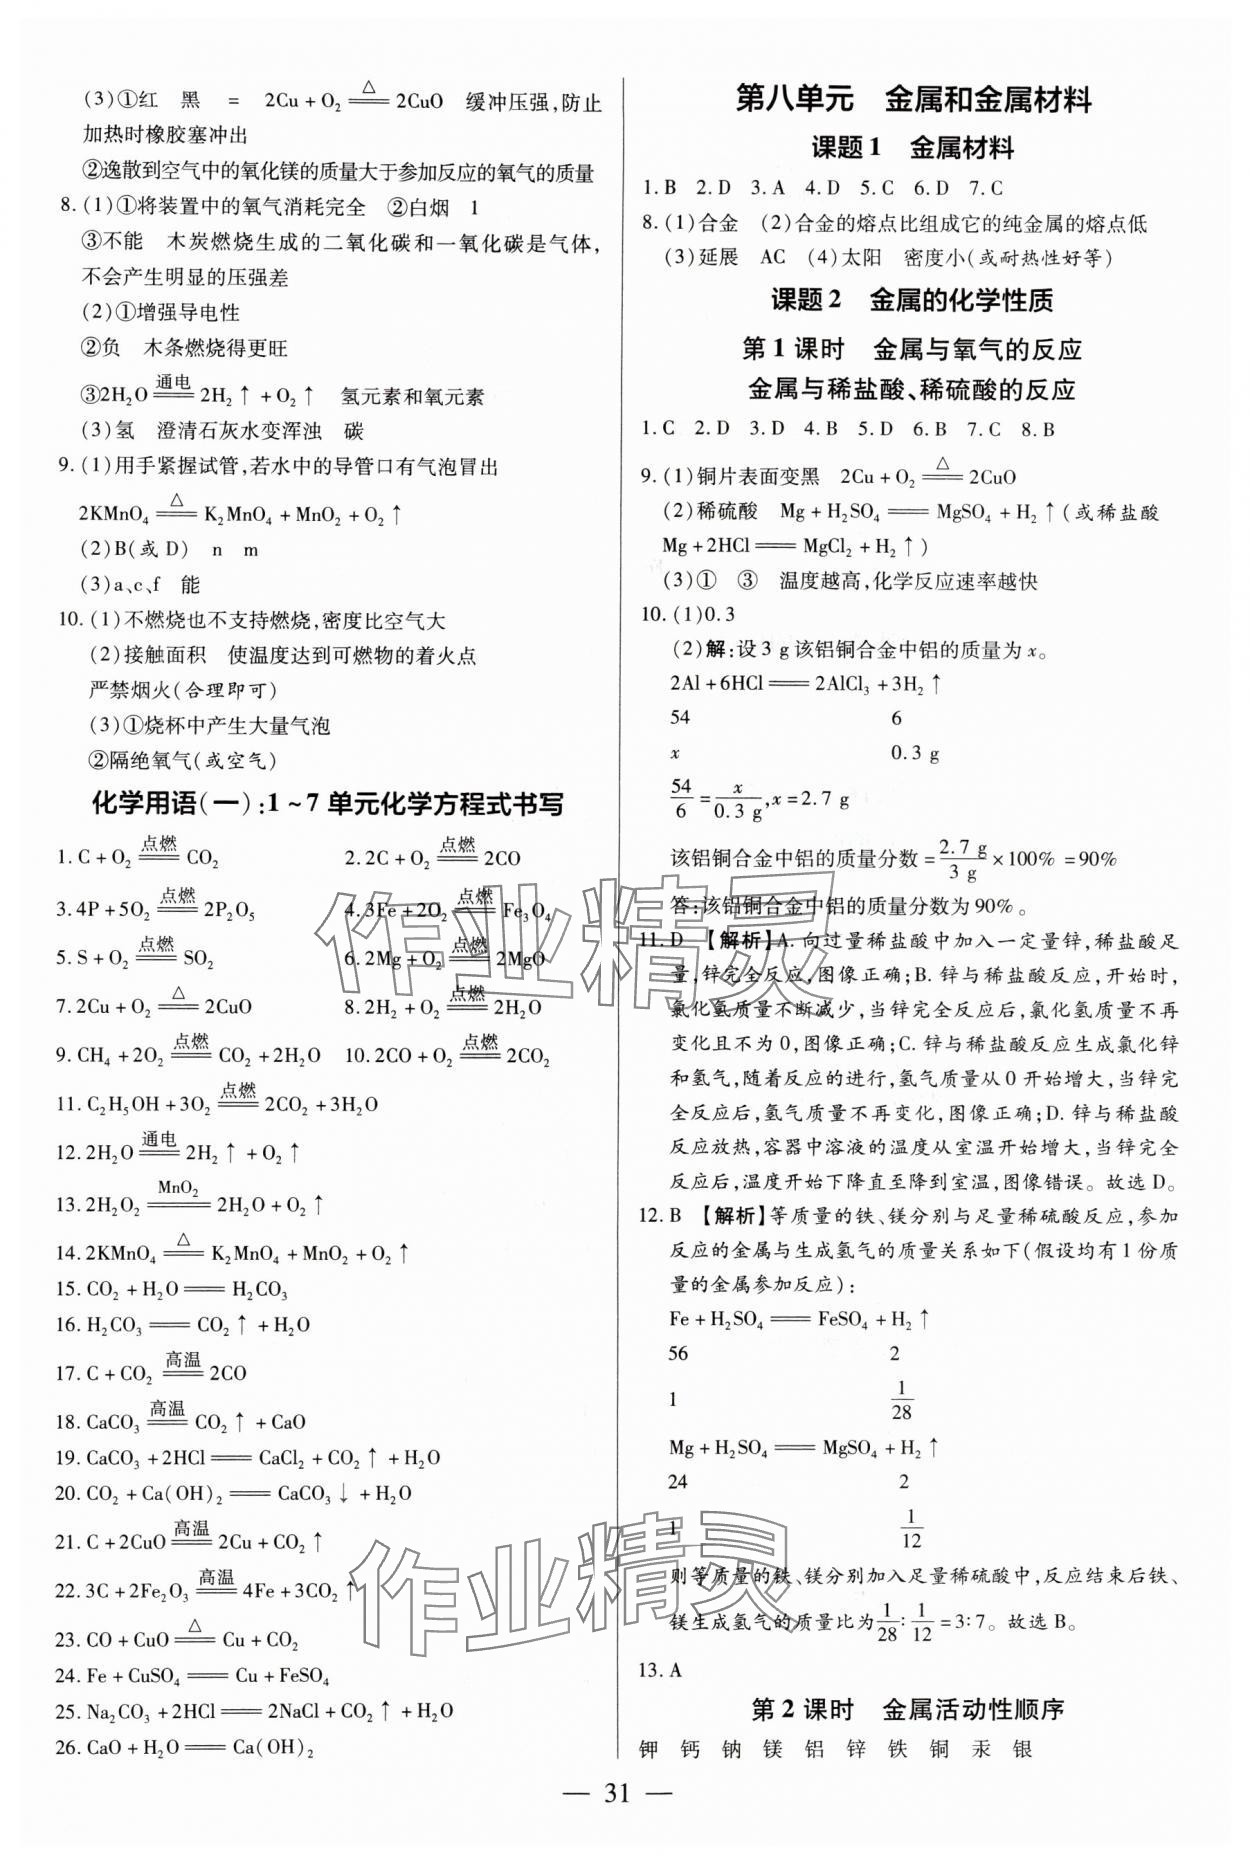 (3)①红　黑　=　2Cu+O₂ =△= 2CuO　缓冲压强,防止
加热时橡胶塞冲出
②逸散到空气中的氧化镁的质量大于参加反应的氧气的质量
8.(1)①将装置中的氧气消耗完全　②白烟　1
③不能　木炭燃烧生成的二氧化碳和一氧化碳是气体,
不会产生明显的压强差
(2)①增强导电性
②负　木条燃烧得更旺
③2H₂O =通电= 2H₂↑+O₂↑　氢元素和氧元素
(3)氢　澄清石灰水变浑浊　碳
9.(1)用手紧握试管,若水中的导管口有气泡冒出
2KMnO₄ =△= K₂MnO₄+MnO₂+O₂↑
(2)B(或D)　n　m
(3)a、c、f　能
10.(1)不燃烧也不支持燃烧,密度比空气大
(2)接触面积　使温度达到可燃物的着火点
严禁烟火(合理即可)
(3)①烧杯中产生大量气泡
②隔绝氧气(或空气)
化学用语(一):1~7单元化学方程式书写
1.C+O₂ =点燃= CO₂　2.2C+O₂ =点燃= 2CO
3.4P+5O₂ =点燃= 2P₂O₅　4.3Fe+2O₂ =点燃= Fe₃O₄
5.S+O₂ =点燃= SO₂　6.2Mg+O₂ =点燃= 2MgO
7.2Cu+O₂ =△= 2CuO　8.2H₂+O₂ =点燃= 2H₂O
9.CH₄+2O₂ =点燃= CO₂+2H₂O　10.2CO+O₂ =点燃= 2CO₂
11.C₂H₅OH+3O₂ =点燃= 2CO₂+3H₂O
12.2H₂O =通电= 2H₂↑+O₂↑
13.2H₂O₂ =MnO₂= 2H₂O+O₂↑
14.2KMnO₄ =△= K₂MnO₄+MnO₂+O₂↑
15.CO₂+H₂O══H₂CO₃
16.H₂CO₃══CO₂↑+H₂O
17.C+CO₂ =高温= 2CO
18.CaCO₃ =高温= CO₂↑+CaO
19.CaCO₃+2HCl══CaCl₂+CO₂↑+H₂O
20.CO₂+Ca(OH)₂══CaCO₃↓+H₂O
21.C+2CuO =高温= 2Cu+CO₂↑
22.3C+2Fe₂O₃ =高温= 4Fe+3CO₂↑
23.CO+CuO =△= Cu+CO₂
24.Fe+CuSO₄══Cu+FeSO₄
25.Na₂CO₃+2HCl══2NaCl+CO₂↑+H₂O
26.CaO+H₂O══Ca(OH)₂
第八单元　金属和金属材料
课题1　金属材料
1.B　2.D　3.A　4.D　5.C　6.D　7.C
8.(1)合金　(2)合金的熔点比组成它的纯金属的熔点低
(3)延展　AC　(4)太阳　密度小(或耐热性好等)
课题2　金属的化学性质
第1课时　金属与氧气的反应
金属与稀盐酸、稀硫酸的反应
1.C　2.D　3.D　4.B　5.D　6.B　7.C　8.B
9.(1)铜片表面变黑　2Cu+O₂ =△= 2CuO
(2)稀硫酸　Mg+H₂SO₄══MgSO₄+H₂↑(或稀盐酸
Mg+2HCl══MgCl₂+H₂↑)
(3)①　③　温度越高,化学反应速率越快
10.(1)0.3
(2)解:设3 g该铝铜合金中铝的质量为x。
2Al+6HCl══2AlCl₃+3H₂↑
54　6
x　0.3 g
54/6=x/0.3 g,x=2.7 g
该铝铜合金中铝的质量分数=2.7 g/3 g×100%=90%
答:该铝铜合金中铝的质量分数为90%。
11.D　【解析】A.向过量稀盐酸中加入一定量锌,稀盐酸足
量,锌完全反应,图像正确;B.锌与稀盐酸反应,开始时,
氯化氢质量不断减少,当锌完全反应后,氯化氢质量不再
变化且不为0,图像正确;C.锌与稀盐酸反应生成氯化锌
和氢气,随着反应的进行,氢气质量从0开始增大,当锌完
全反应后,氢气质量不再变化,图像正确;D.锌与稀盐酸
反应放热,容器中溶液的温度从室温开始增大,当锌完全
反应后,温度开始下降直至降到室温,图像错误。故选D。
12.B　【解析】等质量的铁、镁分别与足量稀硫酸反应,参加
反应的金属与生成氢气的质量关系如下(假设均有1份质
量的金属参加反应):
Fe+H₂SO₄══FeSO₄+H₂↑
56　2
1　1/28
Mg+H₂SO₄══MgSO₄+H₂↑
24　2
1　1/12
则等质量的铁、镁分别加入足量稀硫酸中,反应结束后铁、
镁生成氢气的质量比为1/28:1/12=3:7。故选B。
13.A
第2课时　金属活动性顺序
钾　钙　钠　镁　铝　锌　铁　铜　汞　银
— 31 —
作业精灵
作业精灵